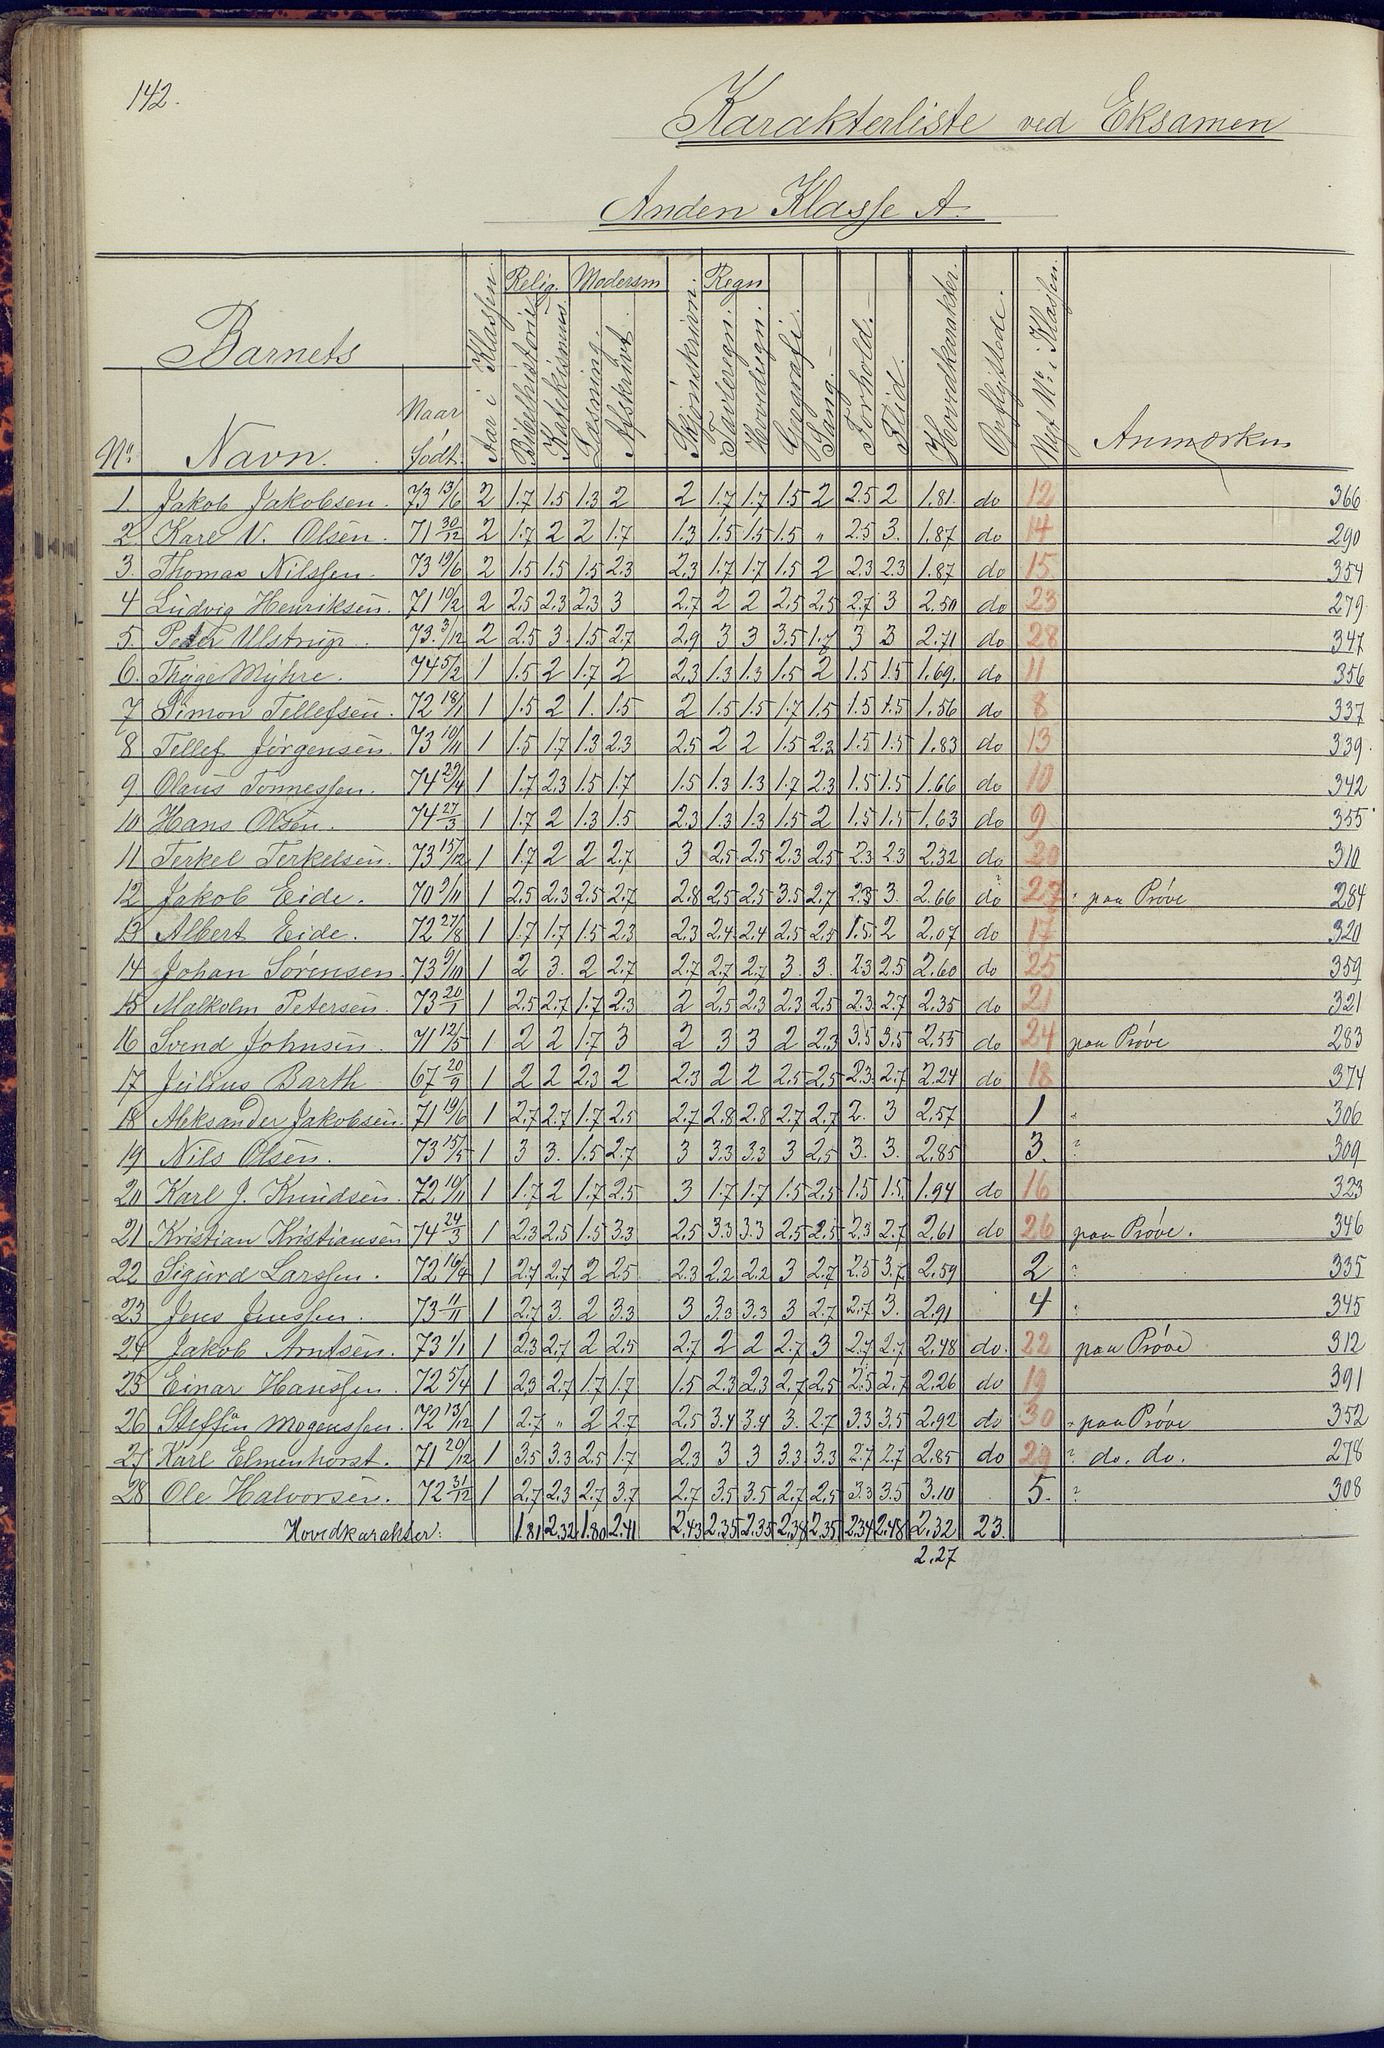 142.
Karakterliste ved Eksamen
Anden Klasse A.
Barnets
No. Navn. Naar født. Aar i Klassen. Relig. Bibelhistorie Katekismus. Modersm Læsning. Afskrivt. Skjønskrivn. Regn Tavleregn. Hovedregn. Geografi. Sang. Forhold. Flid. Hovedkarakter. Opflyttede. Nyt No. i Klassen. Anmærkn
1. Jakob Jakobsen. 73 13/6 2 1.7 1.5 1.3 2 2 1.7 1.7 1.5 2 2.5 2 1.81. do 12 366
2 Karl V. Olsen. 71 30/12 2 1.7 2 2 1.7 1.3 1.5 1.5 1.5 " 2.5 3. 1.87 do 14 290
3. Thomas Nilssen. 73 19/6 2 1.5 1.5 1.5 2.3 2.3 1.7 1.7 1.5 2 2.3 2.3 1.87 do 15. 354
4 Ludvig Henriksen. 71 10/2 2 2.5 2.3 2.3 3 2.7 2 2 2.5 2.5 2.7 3 2.50 do 23 279
5. Peder Ulstrup. 73. 3/12 2 2.5 3. 1.5 2.7 2.9 3 3 3.5 1.7 3 3 2.71 do 28 347
6. Thyge Myhre. 74 5/2 1 1.5 2 1.7 2 2.3 1.3 1.3 1.5 2 1.5 1.5 1.69. do 11 356
7 Simon Tellefsen. 72 18/1 1 1.5 2 1. 1.5 2 1.5 1.5 1.7 1.5 1.5 1.5 1.56 do 8 337
8 Tellef Jørgensen. 73 10/11 1 1.5 1.7 1.3 2.3 2.5 2 2 1.5 2.3 1.5 1.5 1.83 do 13 339.
9 Olaus Tønnessen. 74 29/4 1 1.7 2.3 1.5 1.7 1.5 1.3 1.3 1.7 2.3 1.5 1.5 1.66 do 10 342
10 Hans Olsen. 74 27/3 1 1.7 2 1.3 1.5 2.3 1.3 1.3 1.5 2 1.5 1.5 1.63 do 9 355
11 Terkel Terkelsen. 73 15/12 1 1.7 2 2 2.7 3 2.5 2.5 2.3 2.5 2.3 2.3 2.32 do 20 310
12 Jakob Eide. 70 2/11 1 2.5 2.3 2.5 2.7 2.8 2.5 2.5 3.5 2.7 2.3 3. 2.66 do ? 27 ? paa Prøve 284
13 Albert Eide. 72 27/8 1 1.7 1.7 1.5 2.3 2.3 2.4 2.4 2.5 2.5 1.5. 2 2.07 do 17 320
14 Johan Sørensen. 73 9/10 1 2 3. 2 2.7 2.7 2.7 2.7 3. 3. 2.3 2.5 2.60 do 25 359
15 Malkolm Petersen. 73 20/1 1 2.5 2.7 1.7 2.3 2 2.5 2.3 2.3 2.5 2.3 2.7 2.35 do 21 321
16 Svend Johnsen. 71 12/5 1 2 2 1.7 3 2 3 3 2 2.3 3.5 3.5 2.55 do 24 paa Prøve 283
17 Julius Barth 67 20/9 1 2 2 2.3 2 2.3 2 2 2.5 2.5 2.3 2.7 2.24 do 18 374
18 Aleksander Jakobsen. 71 19/6 1 2.7 2.7 1.7 2.5 2.7 2.8 2.8 2.7 2.7 2. 3 2.57 1 " 306
19 Nils Olsen. 73 15/5 1 3 3. 1.5 2.7 3 3.3 3.3 3 2.5 3. 3. 2.85 3. ? 309
20 Karl J. Knudsen. 72 10/11 1 1.7 2 1.7 2.5 3 1.7 1.7 1.5 2.5 1.5 1.5. 1.94 do 16 323
21 Kristian Kristiansen 74 24/3 1 2.3 2.5 1.5 3.3 2.5 3.3 3.3 2.5 2.5 2.3 2.7 2.61 do 26 paa Prøve. 346
22 Sigurd Larssen. 72 16/4 1 2.7 2.7 2 2.5 2.3 2.2 2.2 3 2.7 2.5 3.7 2.59 2 ? 335
23 Jens Jenssen. 73 11/11 1 2.7 3. 2 3.3 3 3.3 3.3 3 2.7 2.7 3. 2.91 4 ? 345
24 Jakob Arntsen. 73 1/1 1 2.3 2.7 2 2.5 2.7 2 2 2.7 3 2.7 2.7 2.48 do. 22 paa Prøve 312
25 Einar Hanssen. 72 5/4 1 2.3 2.7 1.7 1.7 1.5 2.3 2.3 2.7 2.5 2.5 2.7 2.26 do 19 391
26 Steffin Mogenssen. 72 13/12 1 2.7 " 2 2.7 2.5 3.4 3.4 3. 2.7 3.3 3.5 2.92 do 30 ? paa Prøve 352
27 Karl Elmenhorst. 71 20/12 1 3.5 3.3 2.5 1.7 2.3 3 3 3.3 3.3 2.7 2.7 2.85 do 29 ? do. do. 278
28 Ole Halvorsen. 72 31/12 1 2.7 2.3 2.7 3.7 2.7 3.5 3.5 2.7 2.5 3.3 3.5 3.10 5. ? 308
Hovedkarakter: 1.81 2.32 1.80 2.41 2.43 2.35 2.35 2.38 2.35 2.34 2.48 2.32 23.
2.27